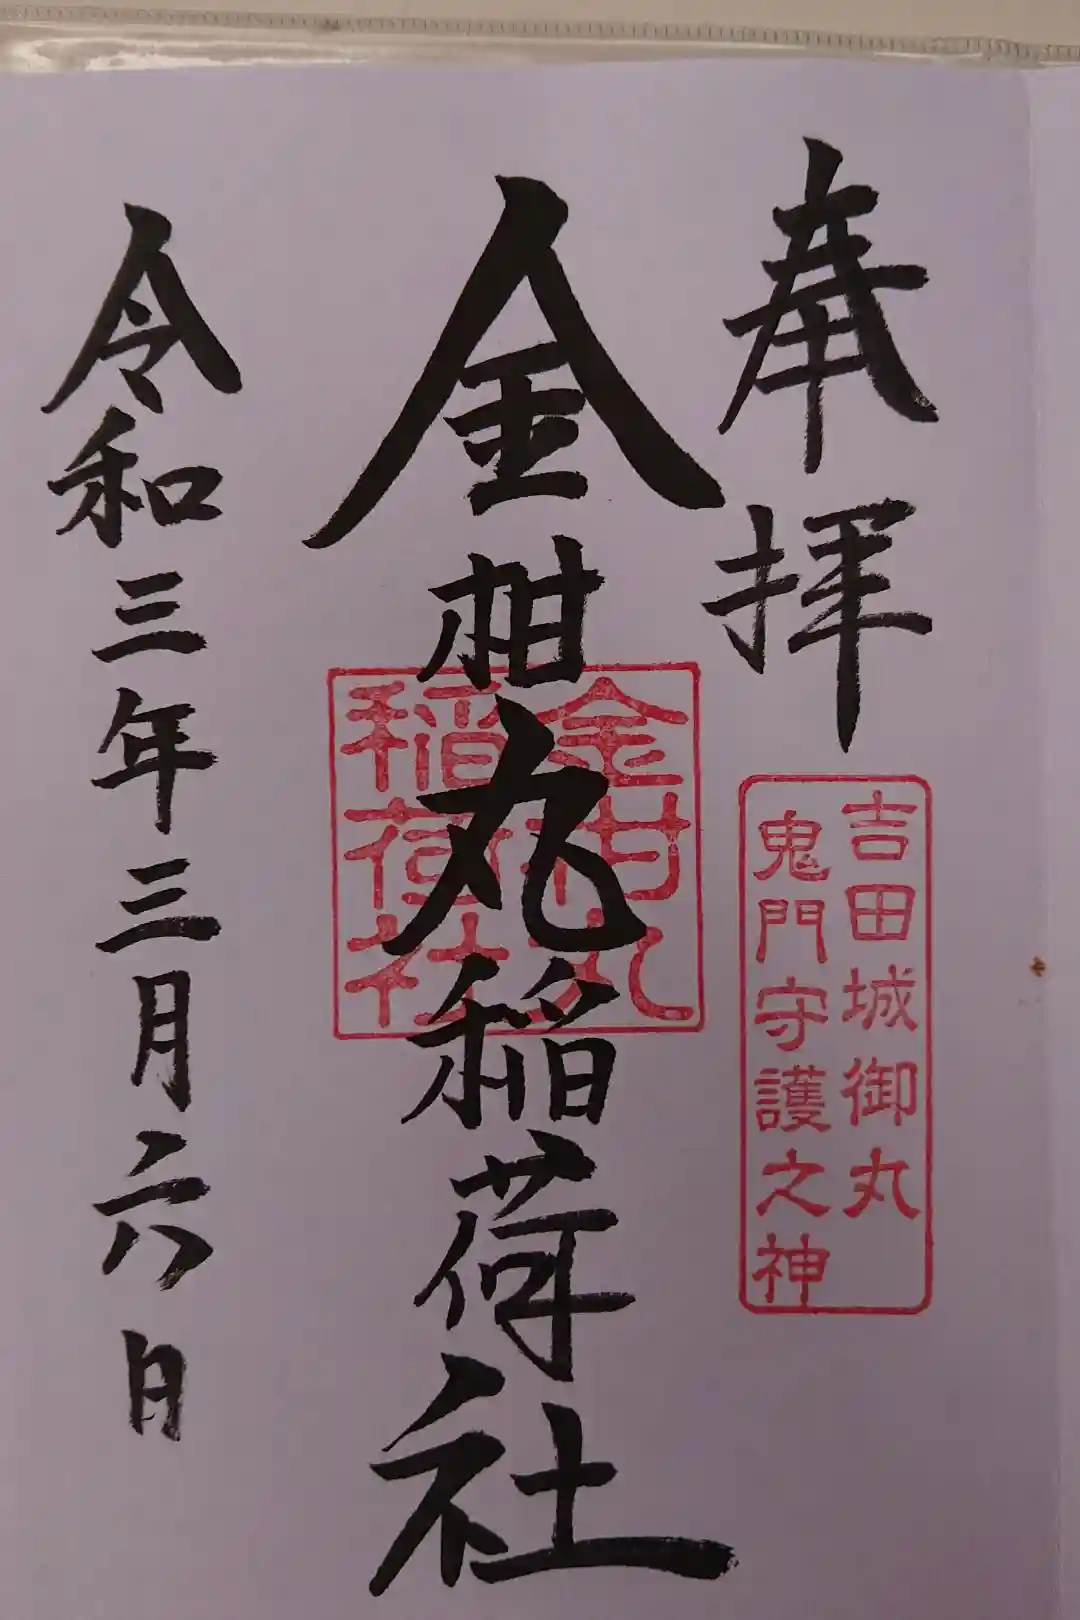 奉拝
吉田城御丸
鬼門守護之神
金柑丸稲荷社
金柑丸
稲荷社
令和三年三月六日